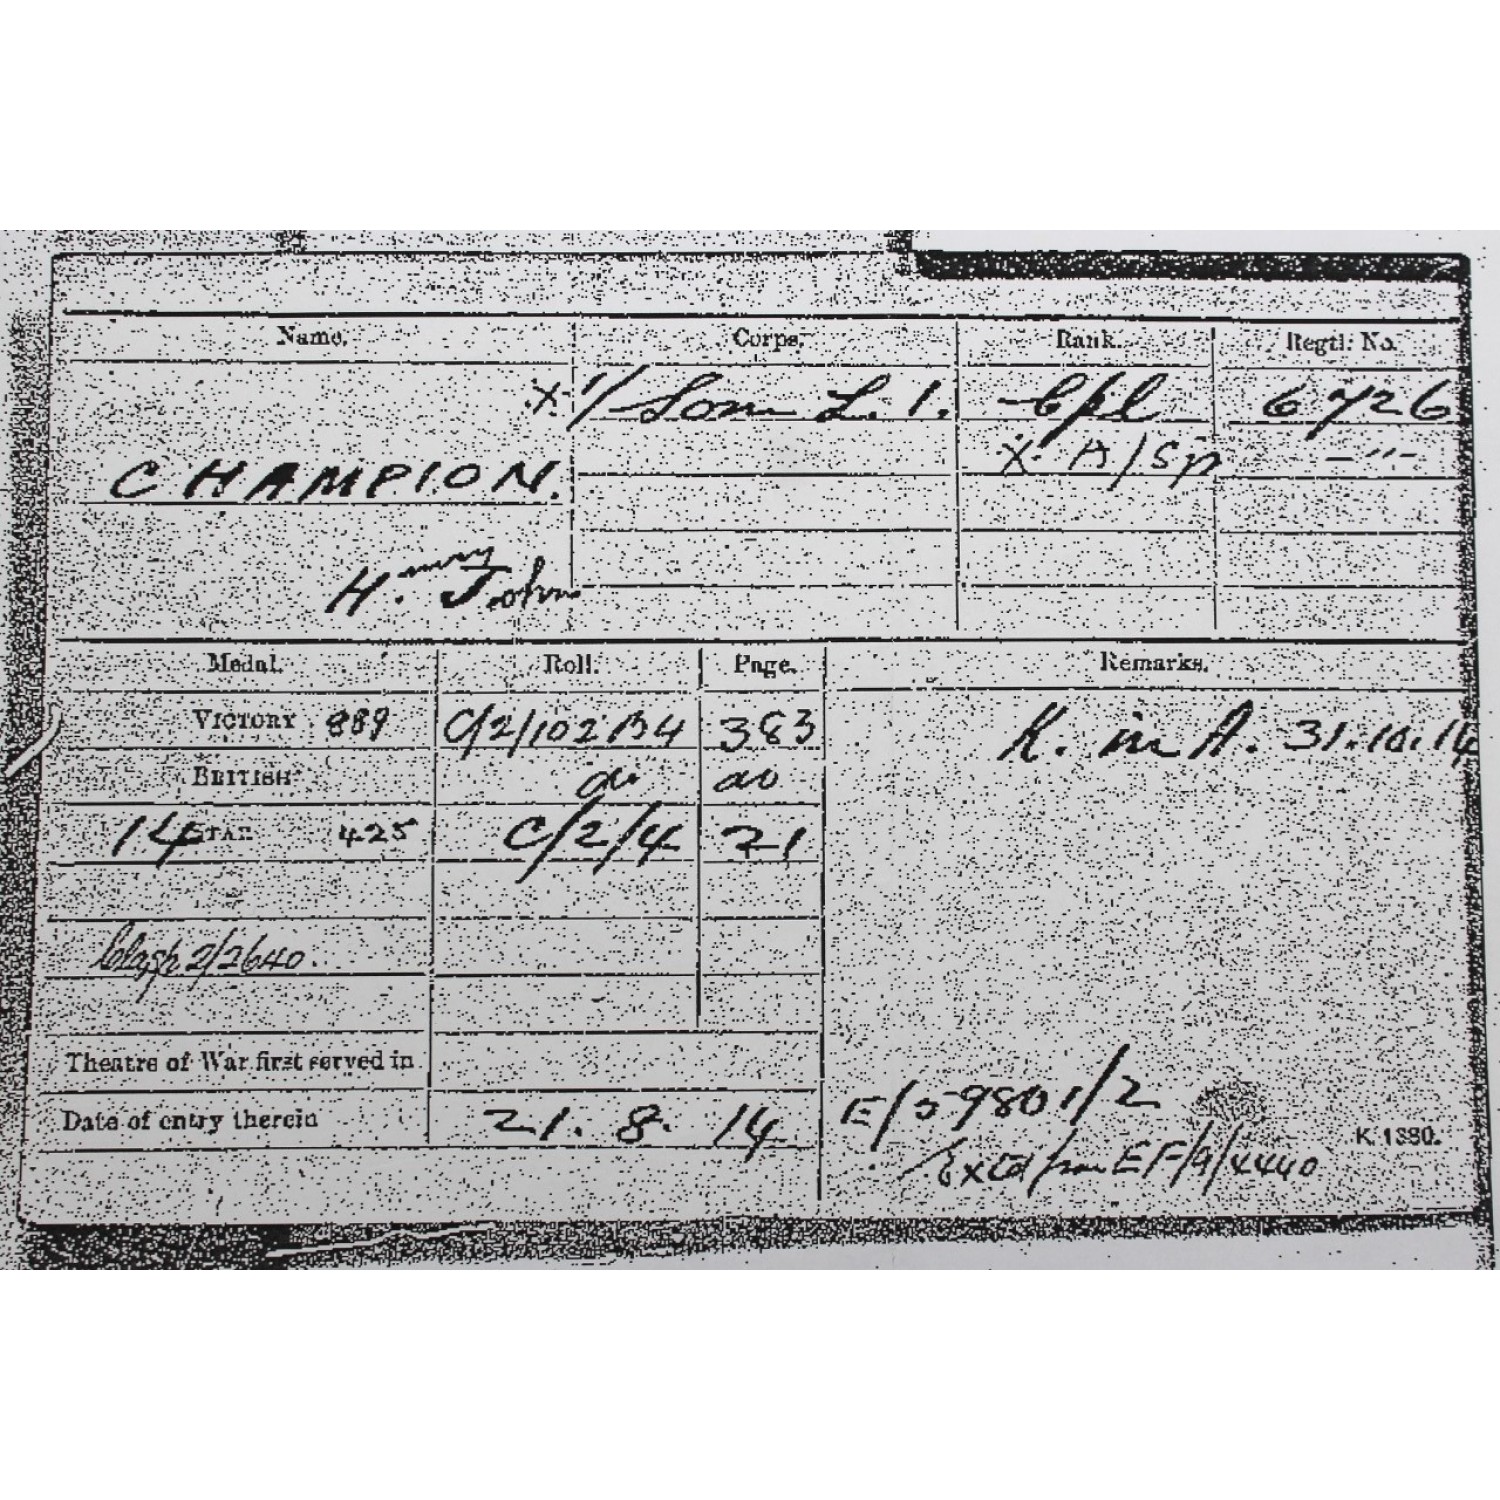 Name. Corps. Rank. Regtl. No.
X 1/ Som L. I. Cpl 6726
X A/Sjt -"-
CHAMPION.
Henry John
Medal. Roll. Page. Remarks.
VICTORY 889 C/2/102 B4 383 K. in A. 31.10.14
BRITISH do do
14 STAR 425 C/2/4 21
Clasp 2/2640.
Theatre of War first served in
Date of entry therein 21. 8. 14
E/59801/2
K. 1380.
Extd from EF/9/4440